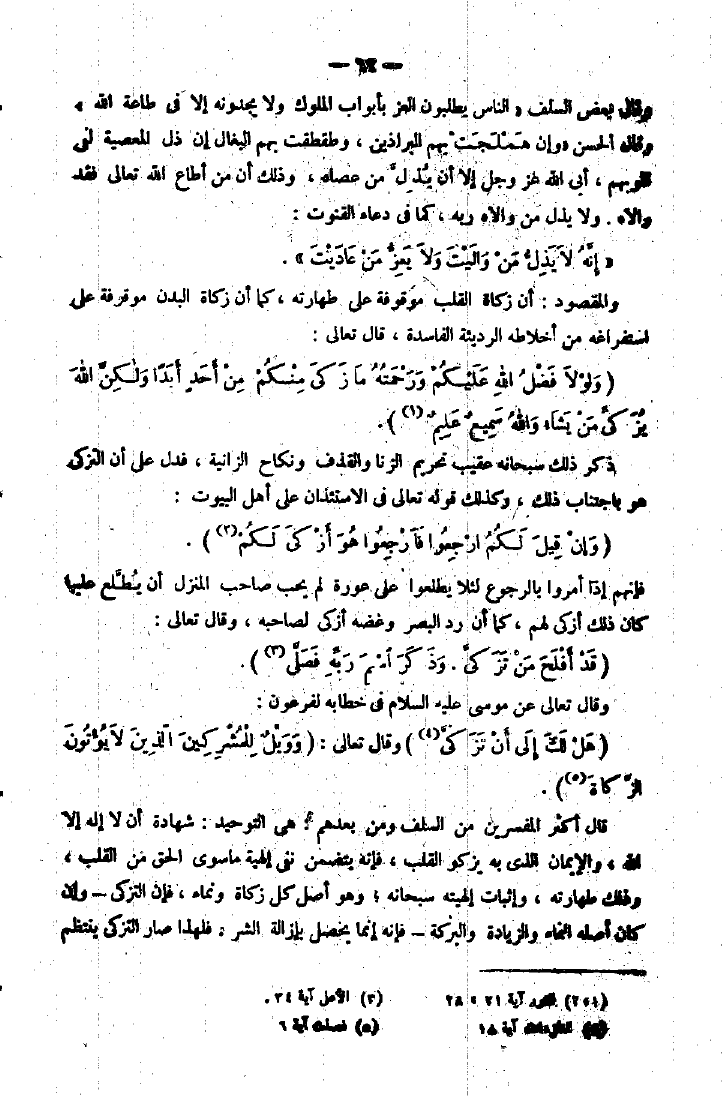 — ٦٤ —
وقال بعض السلف « الناس يطلبون العز بأبواب الملوك ولا يجدونه إلا فى طاعة الله »
وقال الحسن «وإن هَمْلَجَتْ بهم البراذين ، وطقطقت بهم البغال إن ذل المعصية لفى
قلوبهم ، أبى الله عز وجل إلا أن يُذِلَّ من عصاه ، وذلك أن من أطاع الله تعالى فقد
والاه . ولا يذل من والاه ربه ، كما فى دعاء القنوت :
« إِنَّهُ لاَ يَذِلُّ مَنْ وَالَيْتَ وَلاَ يَعِزُّ مَنْ عَادَيْتَ » .
والمقصود : أن زكاة القلب موقوفة على طهارته ، كما أن زكاة البدن موقوفة على
استفراغه من أخلاطه الرديئة الفاسدة ، قال تعالى :
( وَلَوْلاَ فَضْلُ اللهِ عَلَيْكُمْ وَرَحْمَتُهُ مَا زَكَىٰ مِنْكُمْ مِنْ أَحَدٍ أَبَدًا وَلٰكِنَّ اللهَ
يُزَكِّى مَنْ يَشَاءُ وَاللهُ سَمِيعٌ عَلِيمٌ (١) ) .
ذكر ذلك سبحانه عقيب تحريم الزنا والقذف ونكاح الزانية ، فدل على أن التزكى
هو باجتناب ذلك ، وكذلك قوله تعالى فى الاستئذان على أهل البيوت :
( وَإِنْ قِيلَ لَكُمُ ارْجِعُوا فَارْجِعُوا هُوَ أَزْكَىٰ لَكُمْ (٢) ) .
فإنهم إذا أمروا بالرجوع لئلا يطلعوا على عورة لم يحب صاحب المنزل أن يُطَّلَع عليها
كان ذلك أزكى لهم ، كما أن رد البصر وغضه أزكى لصاحبه ، وقال تعالى :
( قَدْ أَفْلَحَ مَنْ تَزَكَّىٰ . وَذَكَرَ اسْمَ رَبِّهِ فَصَلَّىٰ (٣) ) .
وقال تعالى عن موسى عليه السلام فى خطابه لفرعون :
( هَلْ لَكَ إِلَى أَنْ تَزَكَّىٰ (٤) ) وقال تعالى : ( وَوَيْلٌ لِلْمُشْرِكِينَ الَّذِينَ لاَ يُؤْتُونَ
الزَّكَاةَ (٥) ) .
قال أكثر المفسرين من السلف ومن بعدهم : هى التوحيد : شهادة أن لا إله إلا
الله ، والإيمان الذى به يزكو القلب ، فإنه يتضمن نفى إلهية ماسوى الحق من القلب ،
وذلك طهارته ، وإثبات إلهيته سبحانه ؛ وهو أصل كل زكاة ونماء ، فإن التزكى — وإن
كان أصله النماء والزيادة والبركة — فإنه إنما يحصل بإزالة الشر . فلهذا صار التزكى ينتظم
(١،٢) آية ٢١ ، ٢٨
(٣) الأعلى آية ٣٤ .
آية ١٨
(٥) فصلت آية ٦